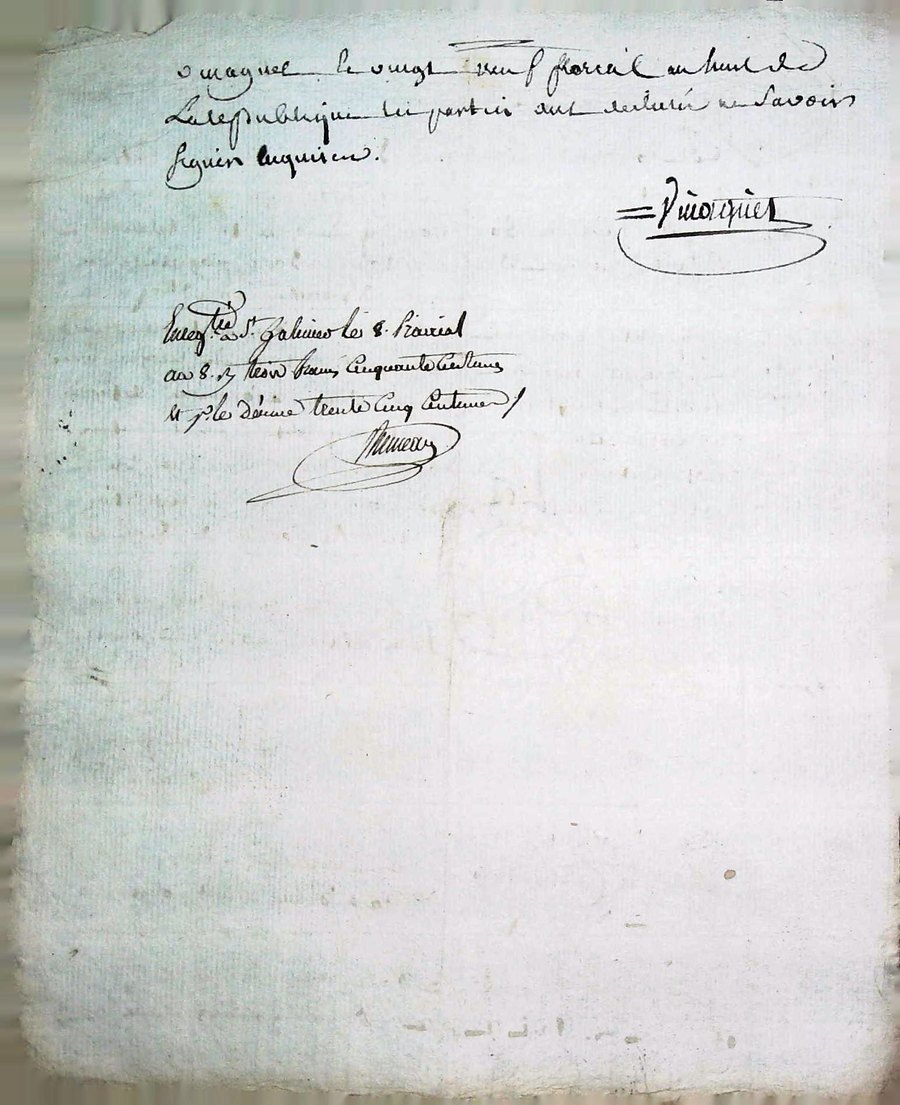 le vingt neuf floreal an huit de
La republique les parties ont declaré ne Savoir
signer Enquises.
Vmagnes
Enreg.tré à St. le 8. Prairial
an 8. R trois francs Cinquante Centimes
et pr le Décime trente Cinq Centimes